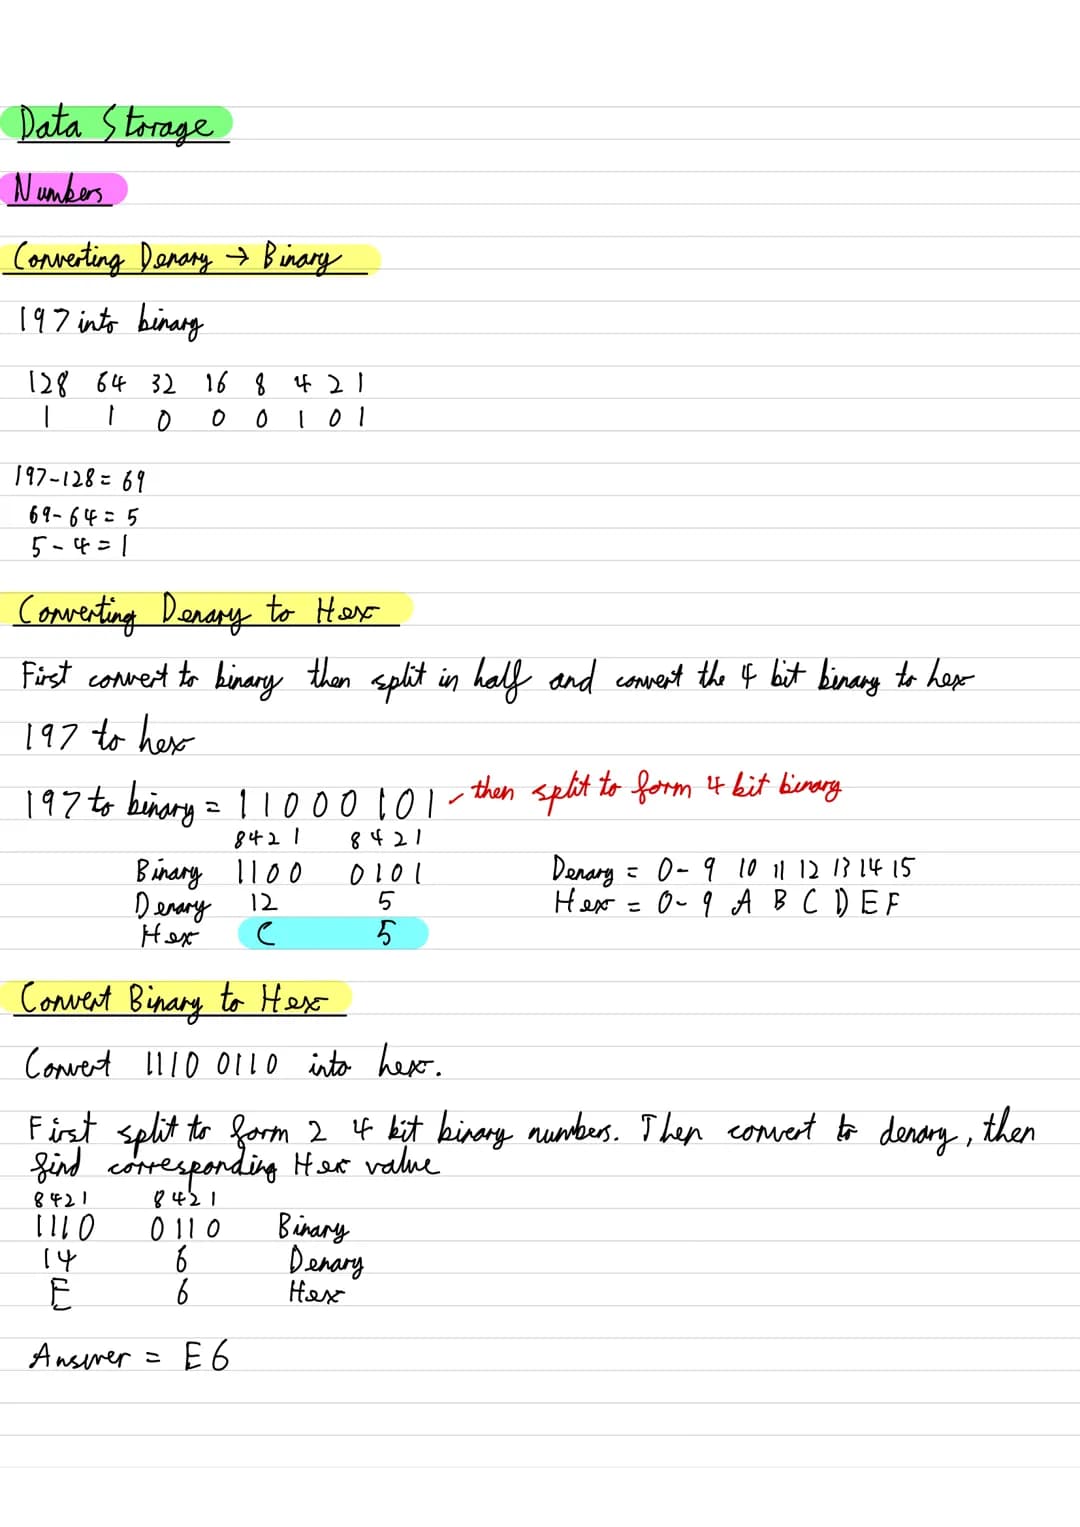 Data Storage
Numbers
Converting Denary → Binary
197 into binary
128 64 32 16 8 4 2 1
1 1 0 0 0 1 0 1
197-128 = 69
69-64 = 5
5-4 = 1
Converting Denary to Hex
First convert to binary then split in half and convert the 4 bit binary to hex
197 to hex
197 to binary = 11000101 - then split to form 4 bit binary
8421 8421
Binary 1100 0101 Denary = 0-9 10 11 12 13 14 15
Denary 12 5 Hex = 0-9 A B C D E F
Hex C 5
Convert Binary to Hex
Convert 1110 0110 into hex.
First split to form 2 4 bit binary numbers. Then convert to denary, then
find corresponding Hex value
8421 8421
1110 0110 Binary
14 6 Denary
E 6 Hex
Answer = E6